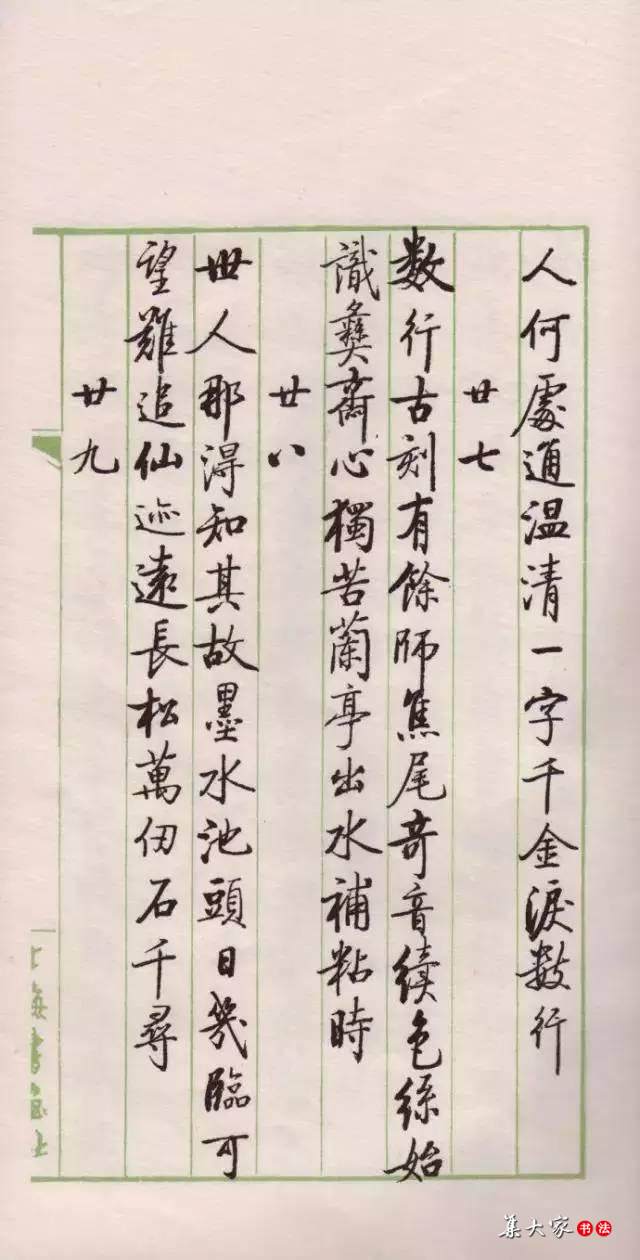 人何處通温清一字千金淚数行
廿七
数行古刻有餘師焦尾奇音續色絲始
識彝齋心獨苦蘭亭出水補粘時
廿八
世人那得知其故墨水池頭日幾臨可
望難追仙迹遠長松萬仞石千尋
廿九
上海書画社
集大家书法